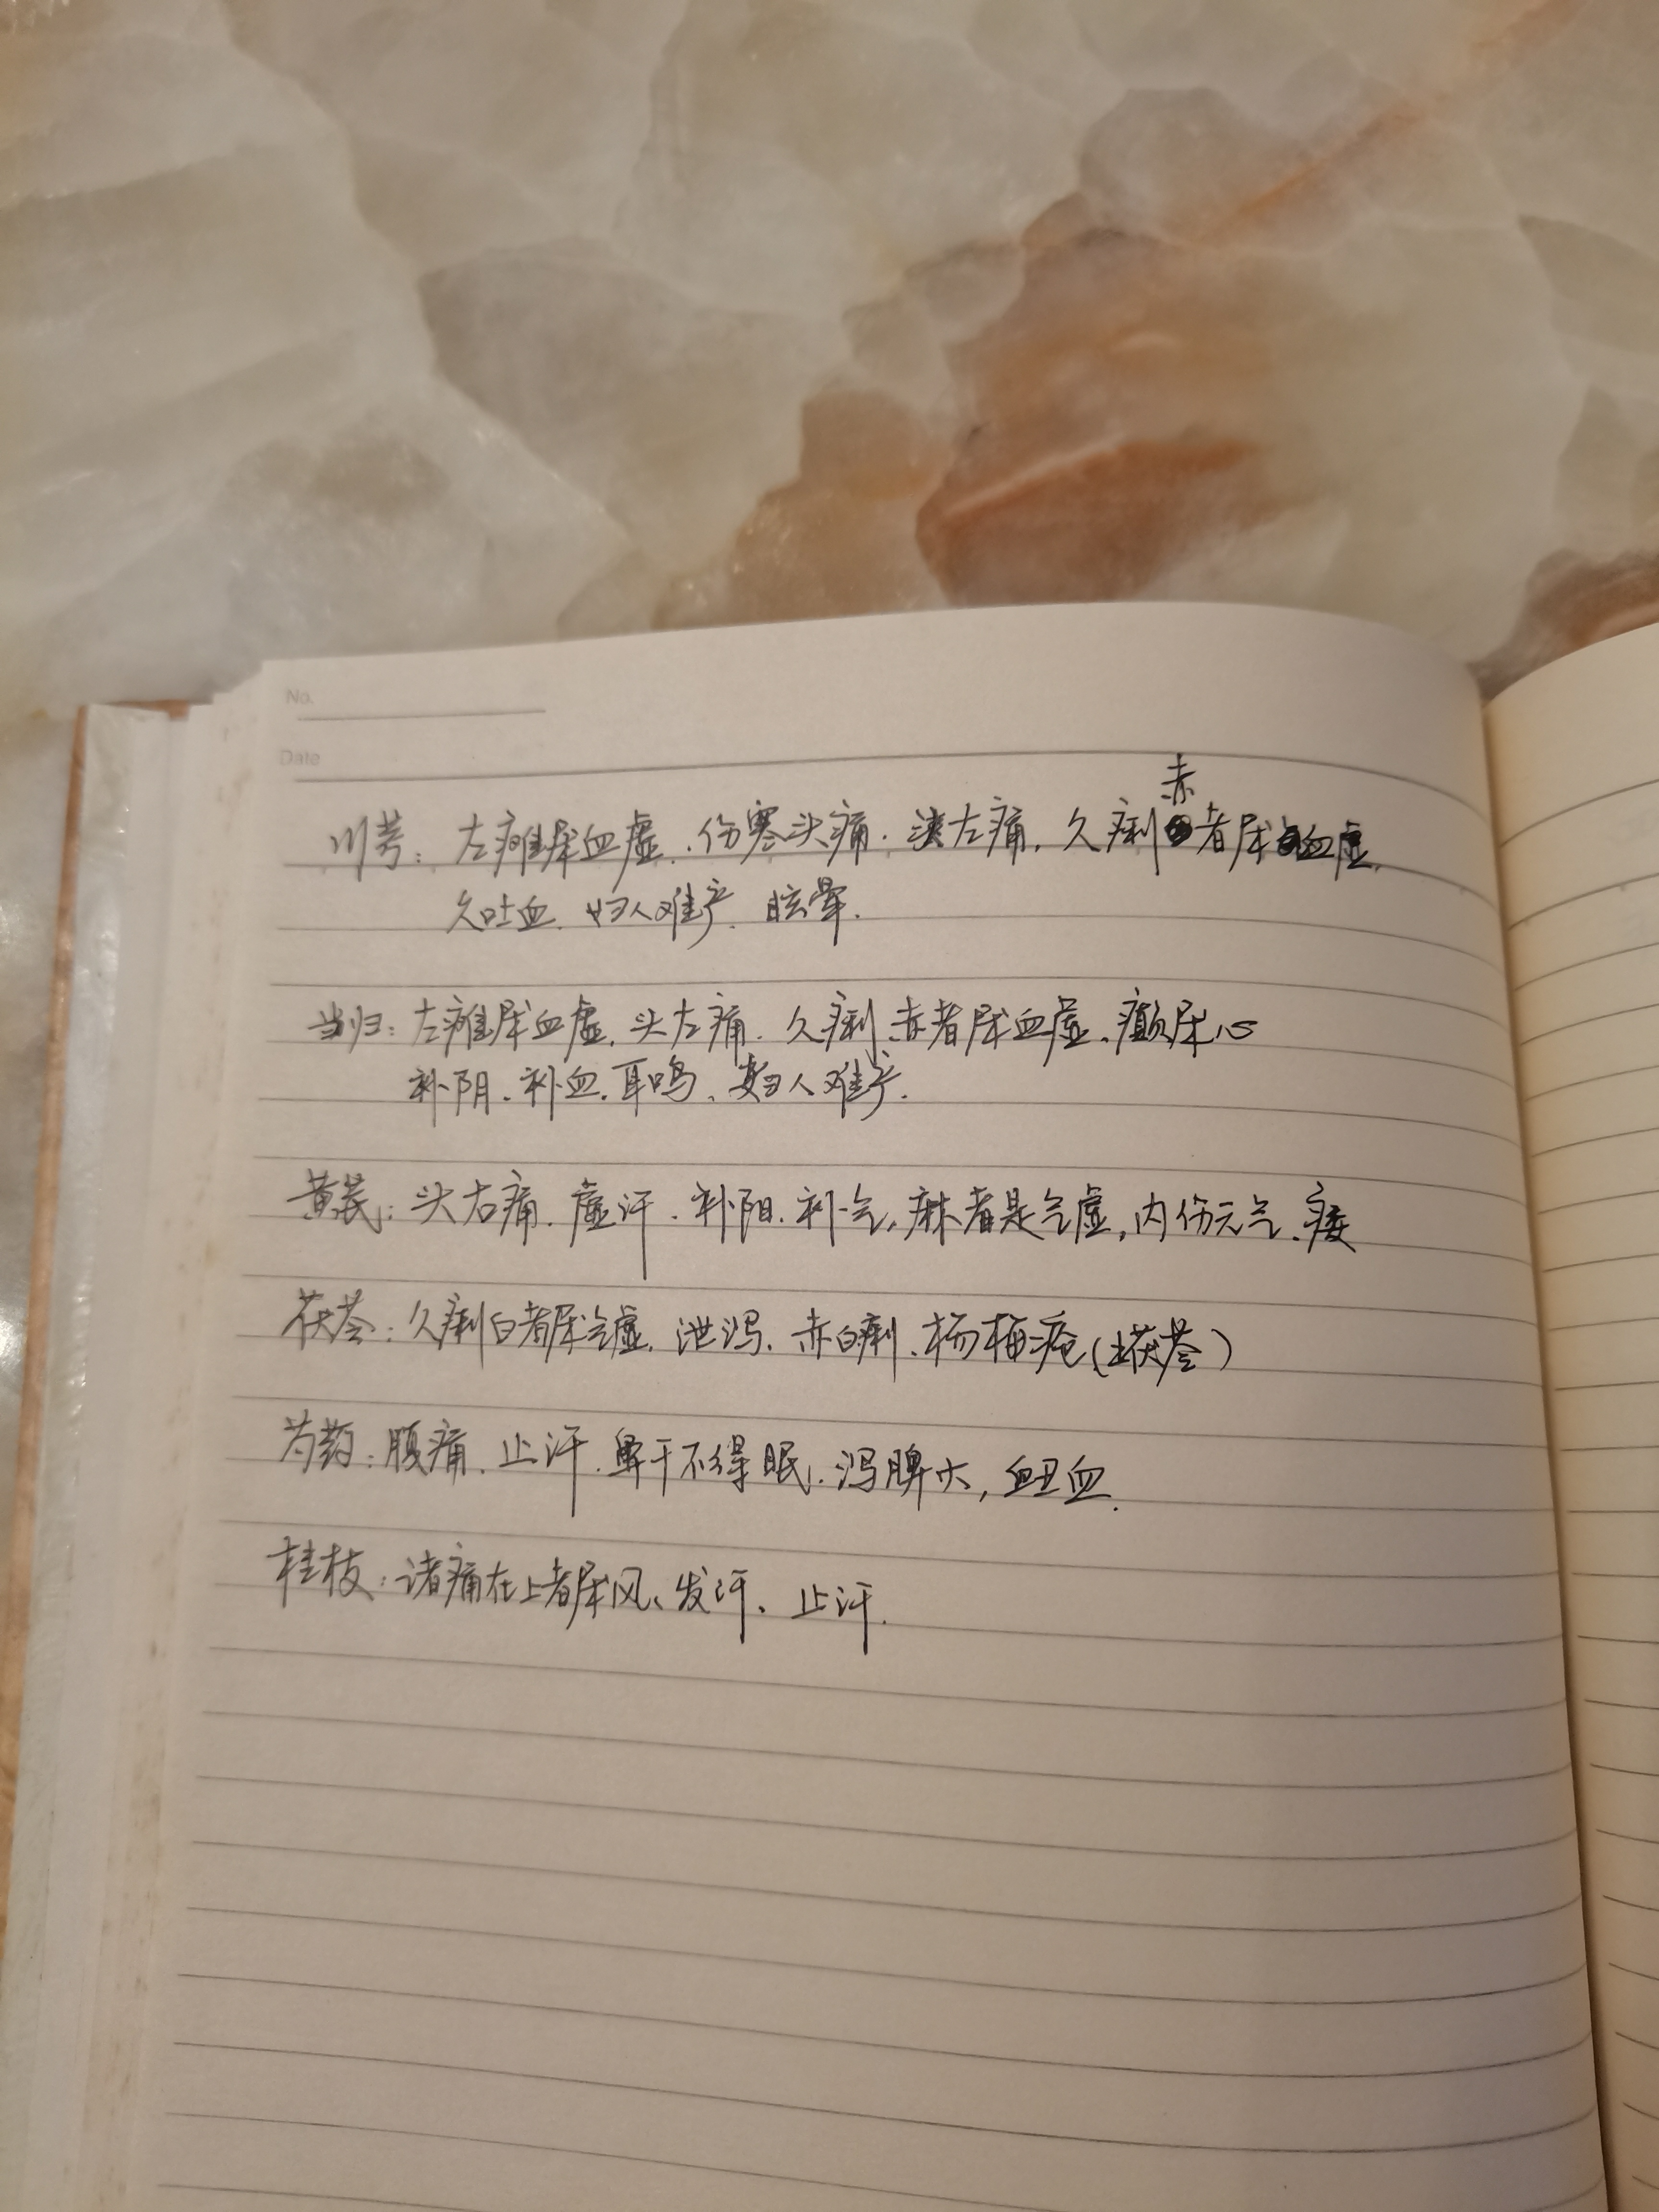 No.
Date
川芎：左瘫属血虚．伤寒头痛．头左痛．久痢赤者属血虚．
久吐血．妇人难产．眩晕．
当归：左瘫属血虚．头左痛．久痢．赤者属血虚．癫属心
补阴．补血．耳鸣．妇人难产．
黄芪：头右痛．虚汗．补阳．补气，麻者是气虚，内伤元气．痿
茯苓：久痢白者属气虚．泄泻．赤白痢．杨梅疮（土茯苓）
芍药：腹痛．止汗．鼻干不得眠．泻脾火，衄血．
桂枝：诸痛在上者属风、发汗、止汗．